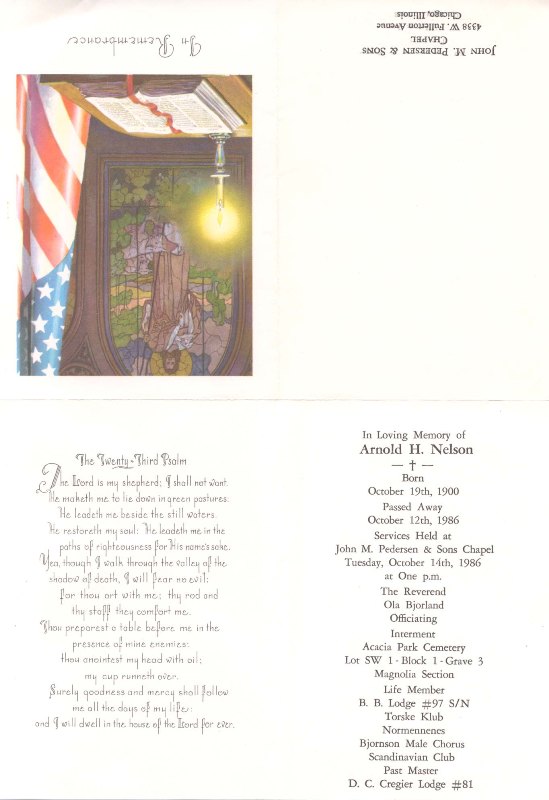 In Remembrance
JOHN M. PEDERSEN & SONS
CHAPEL
4338 W. Fullerton Avenue
Chicago, Illinois
The Twenty-Third Psalm
The Lord is my shepherd; I shall not want.
He maketh me to lie down in green pastures:
He leadeth me beside the still waters.
He restoreth my soul: He leadeth me in the
paths of righteousness for His name's sake.
Yea, though I walk through the valley of the
shadow of death, I will fear no evil:
for thou art with me; thy rod and
thy staff they comfort me.
Thou preparest a table before me in the
presence of mine enemies:
thou anointest my head with oil;
my cup runneth over.
Surely goodness and mercy shall follow
me all the days of my life:
and I will dwell in the house of the Lord for ever.
In Loving Memory of
Arnold H. Nelson
Born
October 19th, 1900
Passed Away
October 12th, 1986
Services Held at
John M. Pedersen & Sons Chapel
Tuesday, October 14th, 1986
at One p.m.
The Reverend
Ola Bjorland
Officiating
Interment
Acacia Park Cemetery
Lot SW 1 - Block 1 - Grave 3
Magnolia Section
Life Member
B. B. Lodge #97 S/N
Torske Klub
Normennenes
Bjornson Male Chorus
Scandinavian Club
Past Master
D. C. Cregier Lodge #81